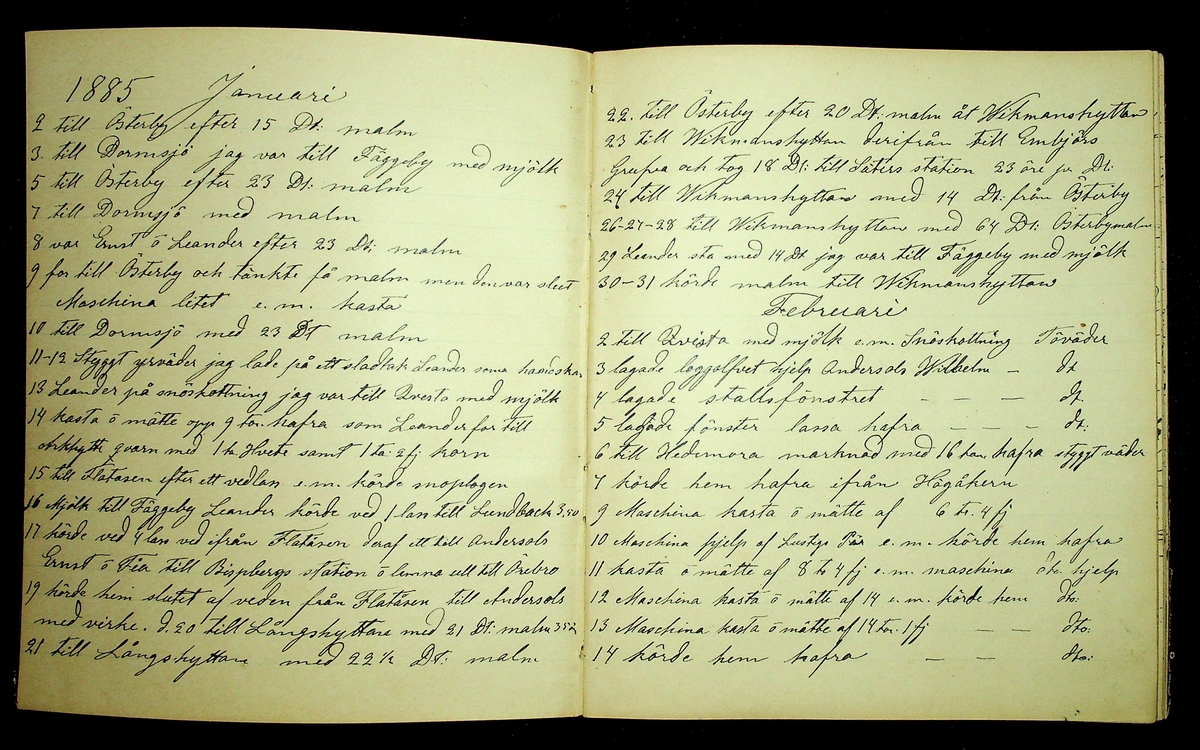 1885 Januari
2 till Österby efter 15 Dt: malm
3. till Dormsjö jag var till Fäggeby med mjölk
5 till Österby efter 23 Dt: malm
7 till Dormsjö med malm
8 var Ernst ö Leander efter 23 Dt: malm
9 for till Österby och tänkte få malm men den var slut
Maschina litet e.m. kasta
10 till Dormsjö med 23 Dt malm
11-12 Styggt yrväder jag lade på ett sladtak Leander
13 Leander på snöskottning jag var till Qvesta med mjölk
14 kasta ö mätte opp 9 tr. hafra som Leander for till
qvarn med 1 tr Hvete samt 1 tr: 2 fj korn
15 till Flatåsen efter ett vedlan e.m. körde snoplogen
16 Mjölk till Fäggeby Leander körde ved 1 lan till Lundback 3,50
17 körde ved 4 lass ved ifrån Flatåsen deraf ett till Andersols
Ernst ö Fia till Bispbergs station ö lemna ull till Örebro
19 körde hem slutet af veden från Flatåsen till Andersols
med virke. d.20 till Långshyttan med 21 Dt: malm 35
21 till Långshyttan med 22½ Dt: malm
22. till Österby efter 20 Dt: malm åt Wikmanshyttan
23 till Wikmanshyttan derifrån till Embjörs
Grufva och tog 18 Dt: till Säters station 23 öre pr Dt:
24 till Wikmanshyttan med 14 Dt: från Österby
26-27-28 till Wikmanshyttan med 64 Dt: Österbymalm
29 Leander sta med 14 Dt jag var till Fäggeby med mjölk
30-31 körde malm till Wikmanshyttan
Februari
2 till Qvista med mjölk e.m. Snöskottning Töväder
3 lagade loggolfvet hjelp Andersols Wilhelm — dt
4 lagade stallsfönstret — — — dt.
5 lagade fönster lassa hafra — — — dt:
6 till Hedemora marknad med 16 tn. hafra styggt väder
7 körde hem hafra ifrån Hågåkern
9 Maschina kasta ö mätte af 6 tr. 4 fj
10 Maschina hjelp af Lustigs Pär e.m. körde hem hafra
11 kasta ö mätte af 8 tr 4 fj e.m. maschina hjelp
12 Maschina kasta ö mätte af 14 e.m. körde hem dto:
13 Maschina kasta ö mätte af 14 tr: 1 fj — — dto.
14 körde hem hafra — — dto: